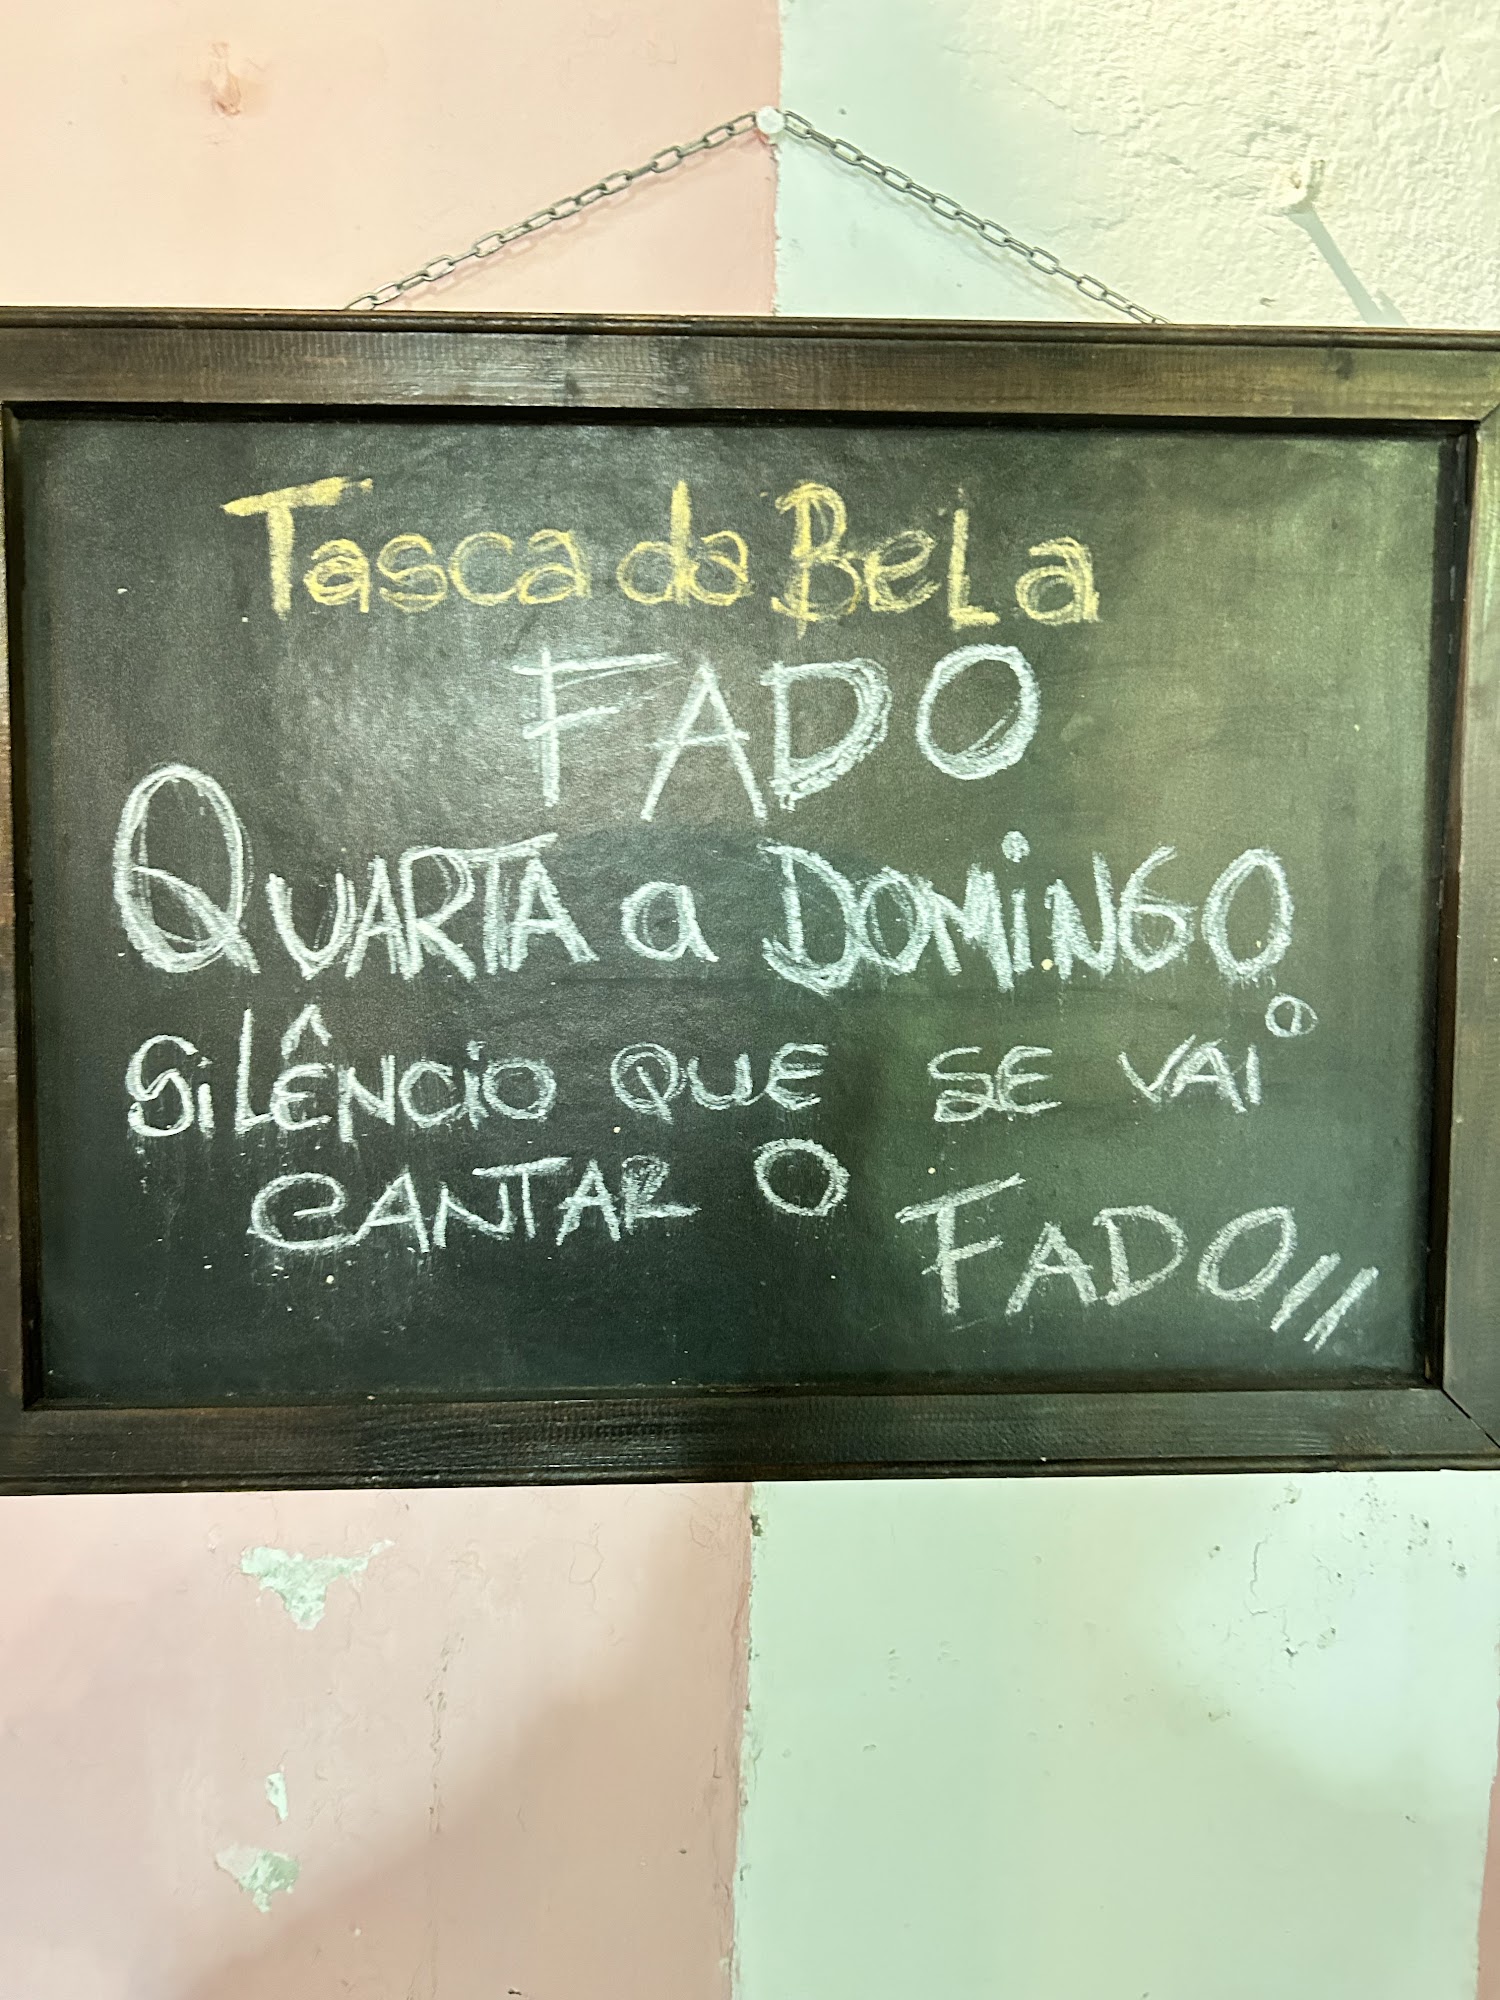 Tasca da Bela
FADO
QUARTA a DOMINGO
SiLÊNCiO QUE SE VAi
CANTAR O FADO//